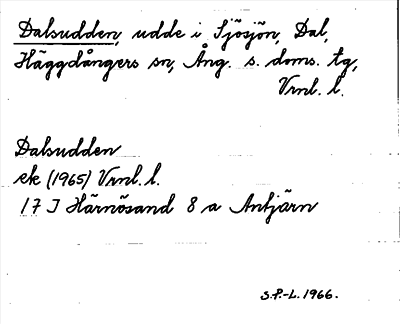 Dalsudden, udde i Sjösjön, Dal,
Häggdångers sn, Ång. s. doms. tg,
Vrnl. l.
Dalsudden
ek (1965) Vrnl. l.
17 J Härnösand 8 a Antjärn
S.P.-L. 1966.